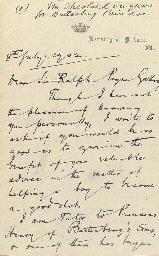 Kensington Palace,
W.
8th July, 1902
Dear Sir Ralph Payne Gallwey
Though I have not
the pleasure of knowing
you personally, I write to
ask if you would be so
good as to give me the
benefit of your valuable
advice in the matter of
helping a boy to become
a good shot.
I am Tutor to Princess
Henry of Battenberg's Sons
& one of them has begun